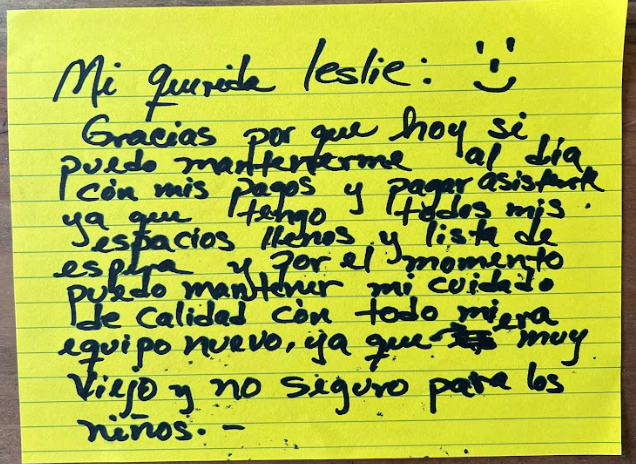 Mi querida leslie:
Gracias por que hoy si
puedo mantenerme al día
con mis pagos y pagar asistente
ya que tengo todos mis
espacios llenos y lista de
espera y por el momento
puedo mantener mi cuidado
de calidad con todo mi
equipo nuevo, ya que era muy
viejo y no seguro para los
niños.-